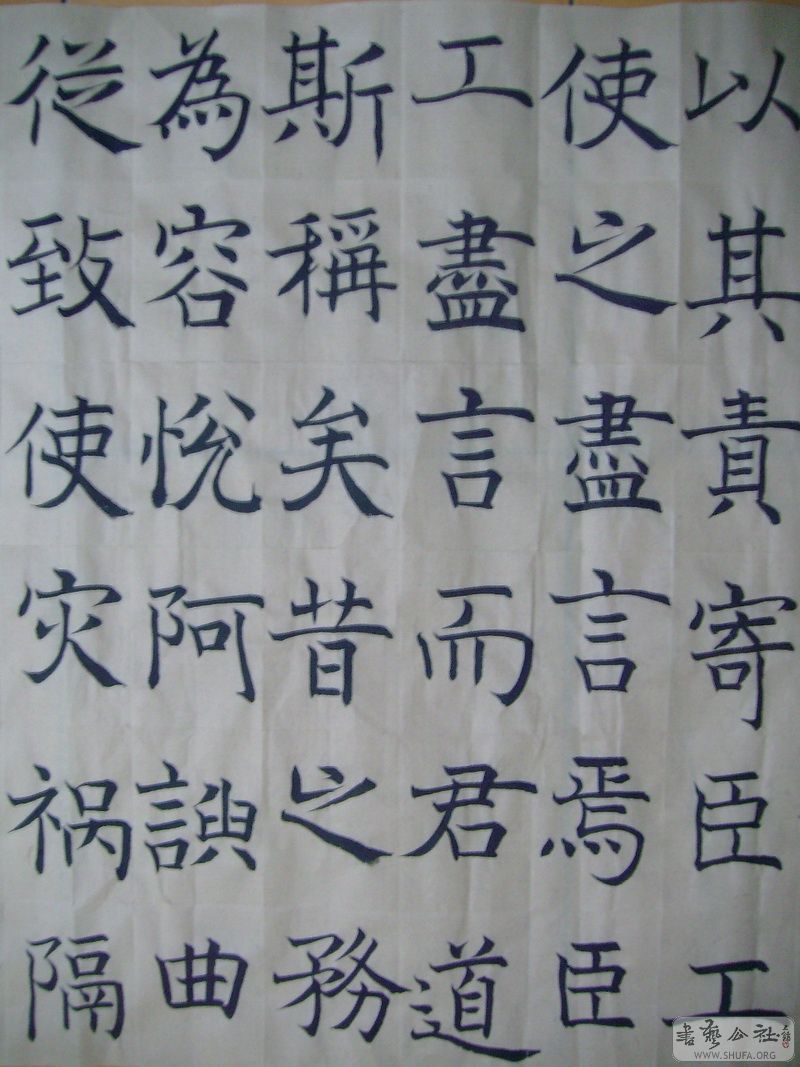 以其責寄臣工
使之盡言焉臣
工盡言而君道
斯稱矣昔之務
為容悅阿諛曲
從致使灾祸隔
書藝公社
WWW.SHUFA.ORG